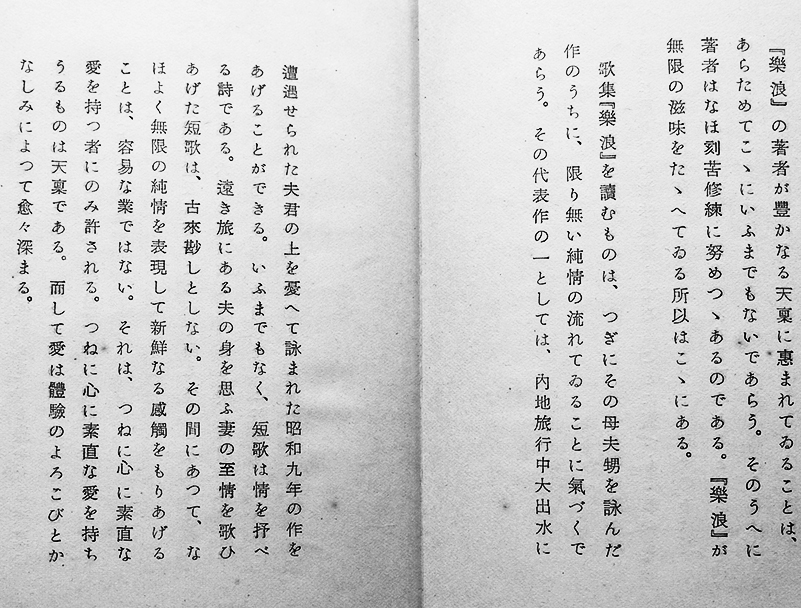 『樂浪』の著者が豊かなる天稟に惠まれてゐることは、
あらためてこゝにいふまでもないであらう。そのうへに
著者はなほ刻苦修練に努めつゝあるのである。『樂浪』が
無限の滋味をたゝへてゐる所以はこゝにある。
歌集『樂浪』を讀むものは、つぎにその母夫甥を詠んだ
作のうちに、限り無い純情の流れてゐることに氣づくで
あらう。その代表作の一としては、內地旅行中大出水に
遭遇せられた夫君の上を憂へて詠まれた昭和九年の作を
あげることができる。いふまでもなく、短歌は情を抒べ
る詩である。遠き旅にある夫の身を思ふ妻の至情を歌ひ
あげた短歌は、古來尠しとしない。その間にあつて、な
ほよく無限の純情を表現して新鮮なる感觸をもりあげる
ことは、容易な業ではない。それは、つねに心に素直な
愛を持つ者にのみ許される。つねに心に素直な愛を持ち
うるものは天稟である。而して愛は體驗のよろこびとか
なしみによつて愈々深まる。